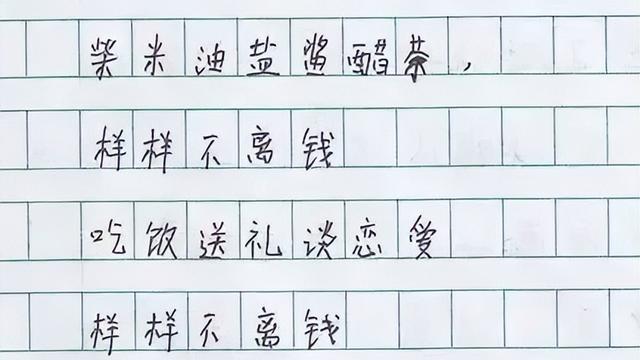 柴米油盐酱醋茶，
样样不离钱
吃饭送礼谈恋爱
样样不离钱